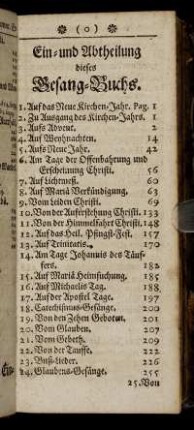 ( o )
Ein- und Abtheilung
dieses
Gesang-Buchs.
1. Auf das Neue Kirchen-Jahr. Pag. 1
2. Zu Ausgang des Kirchen-Jahrs. 1
3. Aufs Advent. 2
4. Auf Weyhnachten. 14
5. Aufs Neue Jahr. 42
6. Am Tage der Offenbahrung und
Erscheinung Christi. 56
7. Auf Lichtmeß. 60
8. Auf Mariä Verkündigung. 63
9. Vom Leiden Christi. 69
10. Von der Auferstehung Christi. 133
11. Von der Himmelfahrt Christi. 148
12. Auf das Heil. Pfingst-Fest. 157
13. Auf Trinitatis. 170
14. Am Tage Johannis des Täuf-
fers. 182
15. Auf Mariä Heimsuchung. 185
16. Auf Michaelis Tag. 188
17. Auf der Apostel Tage. 197
18. Catechismus-Gesänge. 200
19. Von den Zehen Geboten. 201
20. Vom Glauben. 207
21. Vom Gebeth. 209
22. Von der Tauffe. 222
23. Buß-Lieder. 226
24. Glaubens-Gesänge. 255
25. Von